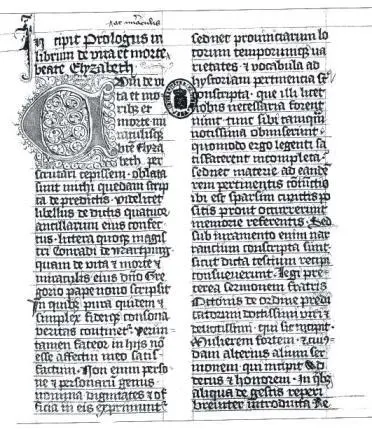 ac miraculis
Incipit Prologus in
librum de vita et morte
beate Elyzabeth
Cum de vi
ta et mo
ribus et
morte mi
raculisq;
bte Elyza
beth per
scrutari cepissem · oblata
sunt michi quedam scrip
ta de predictis · videlicet
libellus de dictis quatuor
ancillarum eius confec
tus · littera quoq; magis
tri Conradi de martpurg
quam de vita et morte et
miraculis eius dno Gre
gorio pape nono scripsit
In quibz pura quidem et
simplex fideiq; consona
veritas continet~ · verum
tamen fateor in hijs no
esse affectui meo satis
factum · Non enim perso
ne et personarum genus
nomina dignitates et of
ficia in eis exprimunt~
sed net prouinciarum lo
corum temporumq; va
rietates · et vocabula ad
hystoriam pertinencia
conscripta · que illi licet
nobis necessaria forent
nunc tunc sibi tamqua
notissima obmiserunt ·
quomodo ergo legenti sa
tisfacerent incompleta ·
sed net materie ad eande
rem pertinentis
ibi est sparsim
sitis prout occurrerunt
memorie referentis · Sed
sub iuramento enim nar
rancium conscripta sunt
sicut dicta testium recipi
consueuerunt · Legi pre
terea sermonem fratris
Ottonis de ordine predi
catorum doctissimi viri et
deuotissimi · qui sic incipit ·
Mulierem fortem · et cuius
dam alterius alium ser
monem qui incipit Ad
decus et honorem · In qbz
aliqua de gestis reperi
breuiter introducta Re